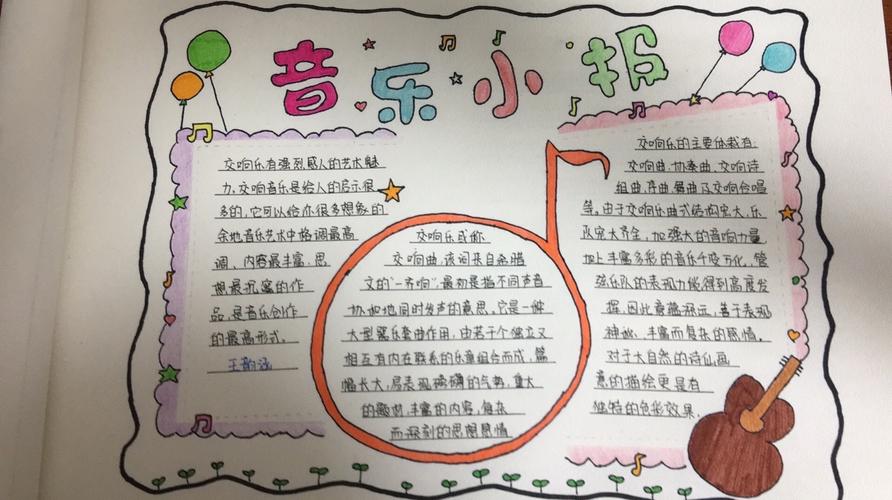 音乐小报
交响乐有强烈感人的艺术魅
力,交响音乐是给人的启示很
多的,它可以给你很多想象的
余地音乐艺术中格调最高
调、内容最丰富、思
想最孔蜜的作
品,是音乐创作
的最高形式。
王韵涵
交响乐或称
交响曲,该词来自希腊
文的"一齐响",最初是指不同声音
协和地同时发声的意思。它是一种
大型器乐套曲作用,由若干个独立又
相互有内在联系的乐章组合而成,篇
幅长大,易表现磅礴的气势,重大
的题材,丰富的内容,复杂
而深刻的思想感情
交响乐的主要体裁有
交响曲、协奏曲、交响诗
组曲、序曲、与曲及交响合唱
等。由于交响乐曲式结构宏大,乐
队宏大齐全,加强大的音响力量
加上丰富多彩的音乐千变万化,管
弦乐队的表现力能得到高度发
挥,因此意蕴深远,善于表现
神秘、丰富而复杂的感情。
对于大自然的诗仙画
意的描绘更是有
独特的色彩效果.